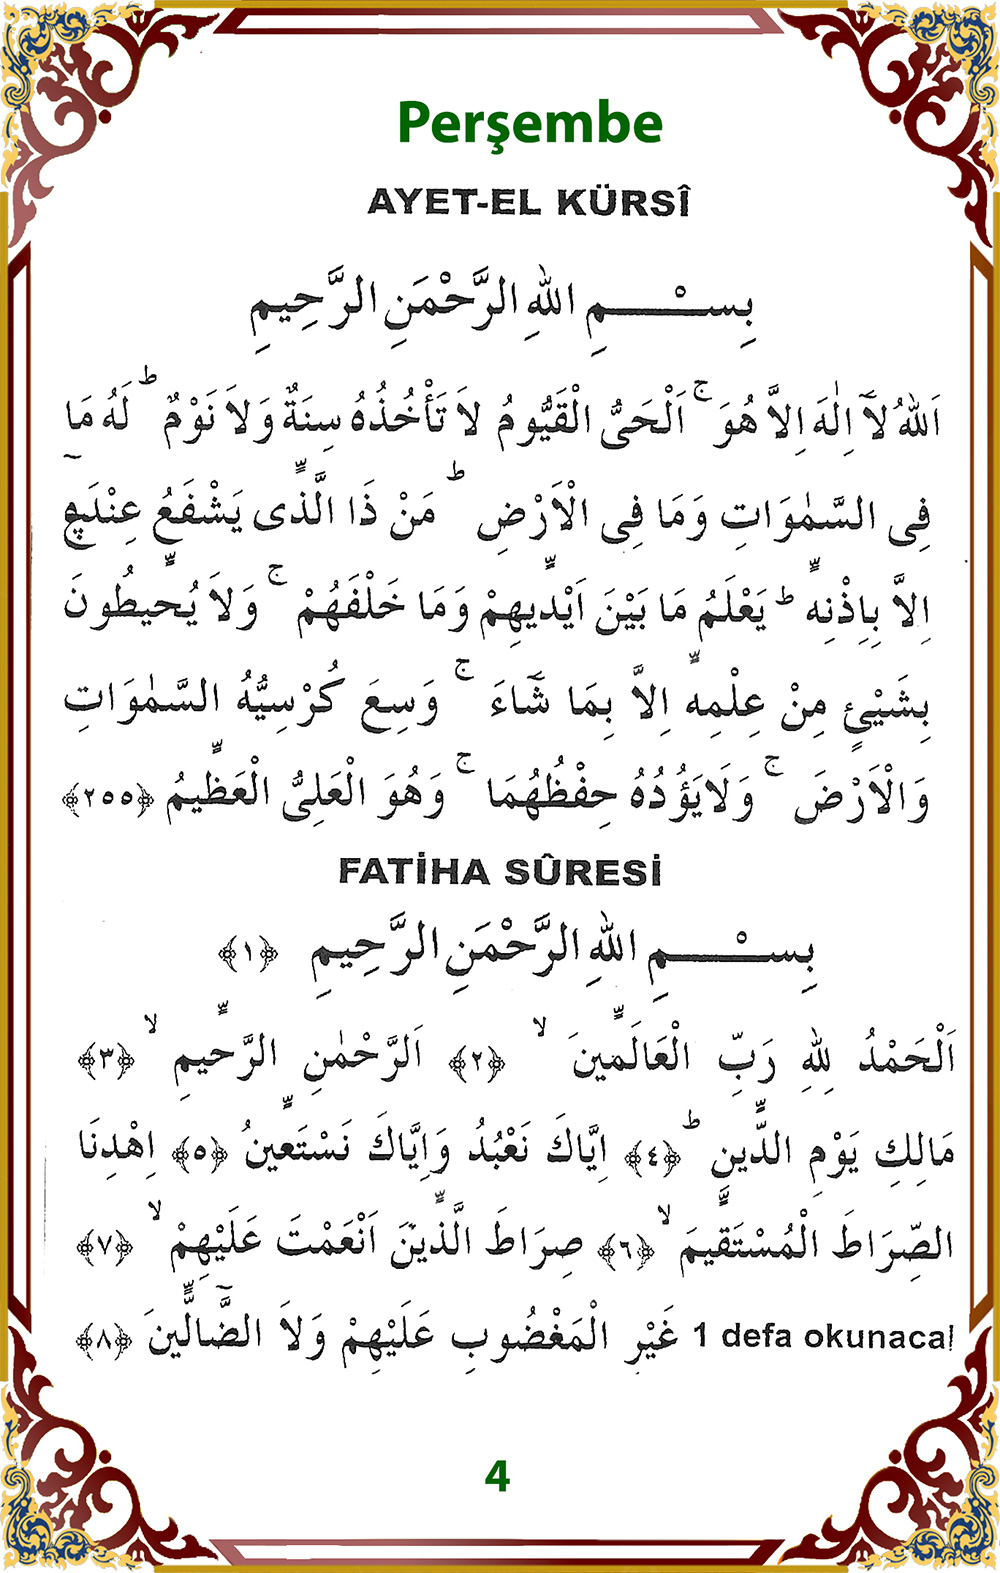 Perşembe
AYET-EL KÜRSÎ
بِســـــــمِ اللهِ الرَّحْمَنِ الرَّحِيمِ
اَللهُ لَآ اِلٰهَ اِلاَّ هُوَ ۚ اَلْحَىُّ الْقَيُّومُ لاَ تَأْخُذُهُ سِنَةٌ وَلاَ نَوْمٌ ؕ لَهُ مَا
فِى السَّمٰوَاتِ وَمَا فِى الْاَرْضِ ؕ مَنْ ذَا الَّذ۪ى يَشْفَعُ عِنْدَهُٓ
اِلاَّ بِاِذْنِه۪ ؕ يَعْلَمُ مَا بَيْنَ اَيْد۪يهِمْ وَمَا خَلْفَهُمْ ۚ وَلاَ يُح۪يطُونَ
بِشَيْئٍ مِنْ عِلْمِه۪ اِلاَّ بِمَا شَٓاءَ ۚ وَسِعَ كُرْسِيُّهُ السَّمٰوَاتِ
وَالْاَرْضَ ۚ وَلَايَؤُدُهُ حِفْظُهُمَا ۚ وَهُوَ الْعَلِىُّ الْعَظ۪يمُ ﴿٢٥٥﴾
FATİHA SÛRESİ
بِســـــــمِ اللهِ الرَّحْمَنِ الرَّحِيمِ ﴿١﴾
اَلْحَمْدُ لِلهِ رَبِّ الْعَالَم۪ينَ ۙ ﴿٢﴾ اَلرَّحْمٰنِ الرَّح۪يمِ ۙ ﴿٣﴾
مَالِكِ يَوْمِ الدّ۪ينِ ؕ ﴿٤﴾ اِيَّاكَ نَعْبُدُ وَاِيَّاكَ نَسْتَع۪ينُ ﴿٥﴾ اِهْدِنَا
الصِّرَاطَ الْمُسْتَق۪يمَ ۙ ﴿٦﴾ صِرَاطَ الَّذ۪ينَ اَنْعَمْتَ عَلَيْهِمْ ۙ ﴿٧﴾
غَيْرِ الْمَغْضُوبِ عَلَيْهِمْ وَلاَ الضَّٓالّ۪ينَ ﴿٨﴾ 1 defa okunacal
4